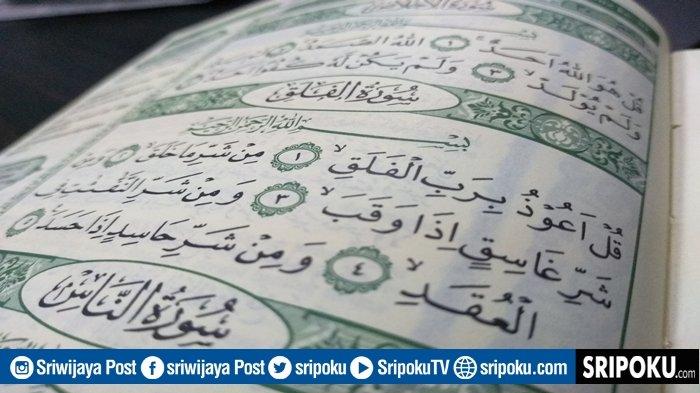 سُورَةُ الْإِخْلَاصِ
قُلْ هُوَ اللّٰهُ اَحَدٌۚ ١ اَللّٰهُ الصَّمَدُۚ
وَلَمْ يُوْلَدْۙ ٣ وَلَمْ يَكُنْ لَّهٗ كُفُوًا اَحَدٌ
سُورَةُ الْفَلَقِ
بِسْمِ اللّٰهِ الرَّحْمٰنِ الرَّحِيْمِ
قُلْ اَعُوْذُ بِرَبِّ الْفَلَقِۙ ١ مِنْ شَرِّ مَا خَلَقَۙ ٢ وَمِنْ
شَرِّ غَاسِقٍ اِذَا وَقَبَۙ ٣ وَمِنْ شَرِّ النَّفّٰثٰتِ فِى
الْعُقَدِۙ ٤ وَمِنْ شَرِّ حَاسِدٍ اِذَا حَسَدَ ٥
سُورَةُ النَّاسِ
Sriwijaya Post sriwijaya Post sripoku SripokuTV sripoku.com SRIPOKU.com